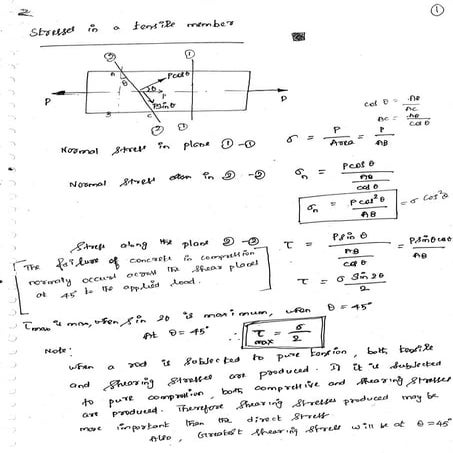 2
①
Stresses in a tensile member
② ①
A
θ
Pcosθ
θ
P P P
Psinθ
B C
② ①
cos θ = AB/AC
AC = AB/cos θ
Normal stress in plane ①-① σ = P/Area = P/AB
Normal stress in ②-② σn = Pcosθ / (AB/cosθ)
σn = Pcos²θ/AB = σ cos²θ
Stress along the plane ②-② τ = Psinθ / (AB/cosθ) = Psinθcosθ/AB
The failure of concrete in compression
normally occurs across the shear plane
at 45° to the applied load.
τ = σ sin2θ/2
τmax is max, when sin 2θ is maximum, when θ = 45°
At θ = 45° τmax = σ/2
Note:
When a rod is subjected to pure tension, both tensile
and shearing stresses are produced. If it is subjected
to pure compression, both compressive and shearing stresses
are produced. Therefore shearing stresses produced may be
more important than the direct stress
Also, Greatest shearing stress will be at θ = 45°